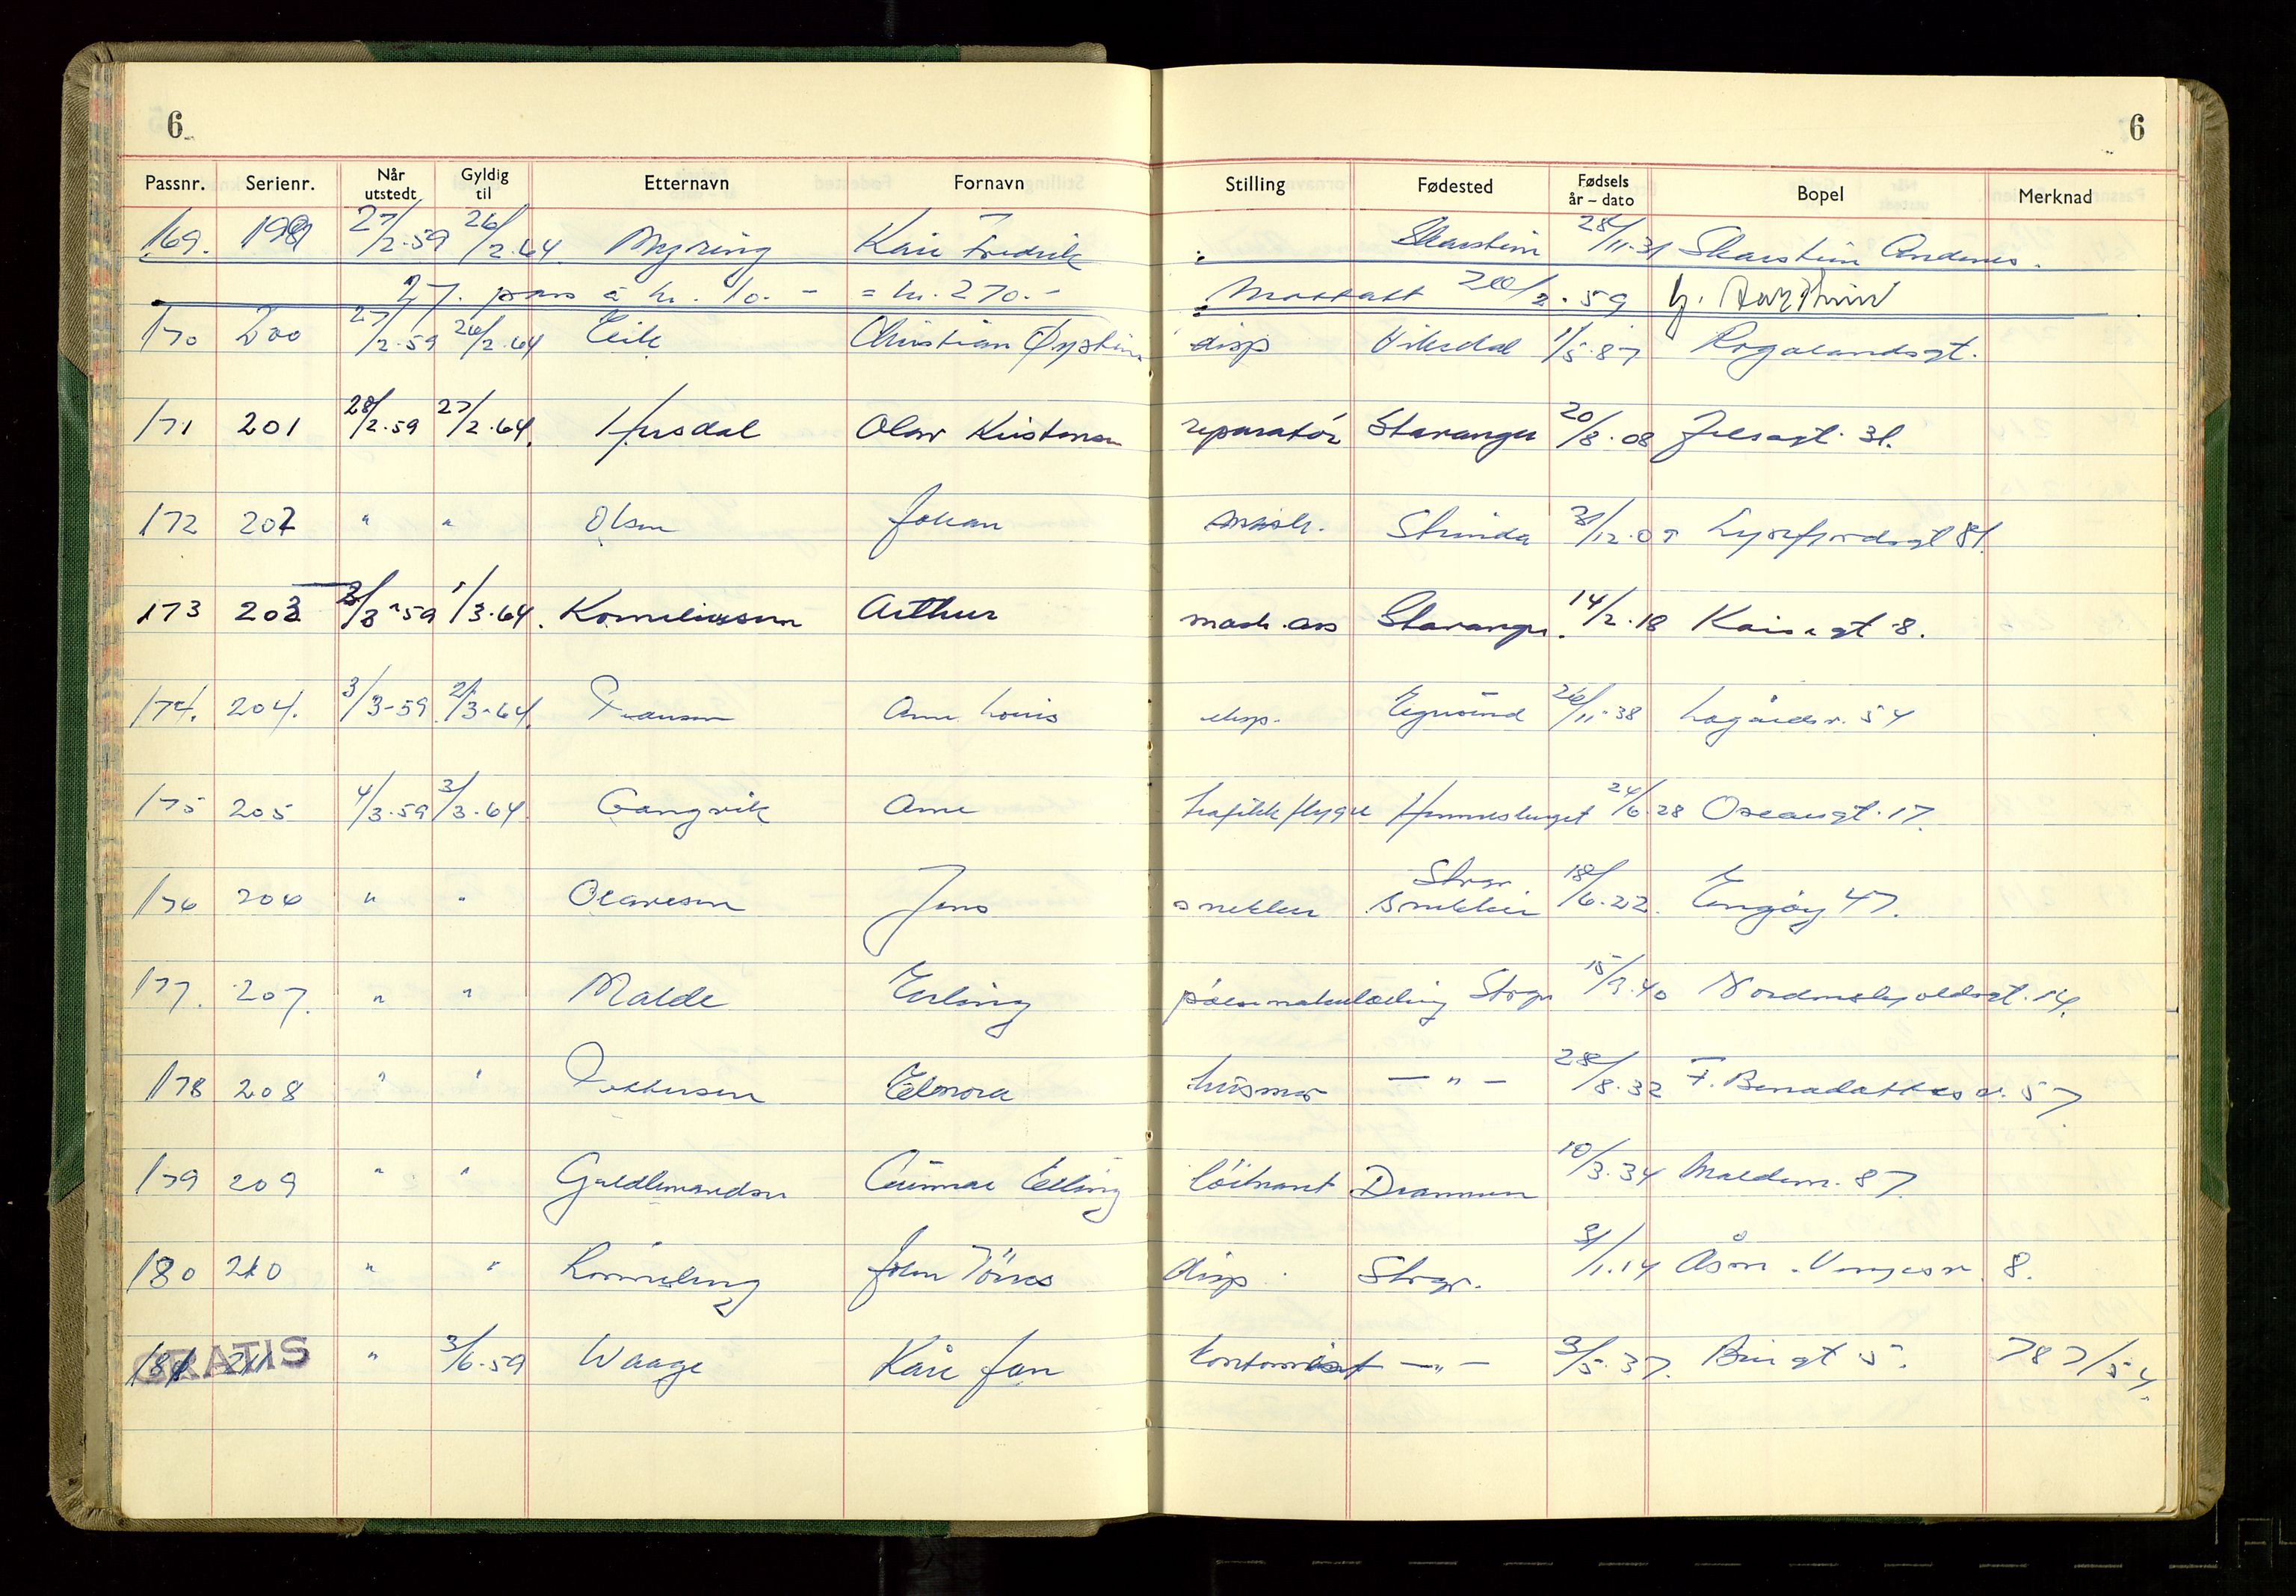 6
6
Passnr. Serienr. Når utstedt Gyldig til Etternavn Fornavn Stilling Fødested Fødsels år – dato Bopel Merknad
169. 199 27/2-59 26/2.64. Myring Kåre Fredrik Skarstein 28/11-31 Skarstein Andenes.
27. pass à kr. 10.- = kr. 270.- Mottatt 2.59
170 200 27/2.59 26/2.64 Eik Christian Øystein disp Vikedal 1/5.87 Rogalandsgt.
171 201 28/2.59 27/2.64. Husdal Olav Kristensen reparatör Stavanger 20/8.08 Jelsagt. 31.
172 202 " " Olsen Johan mask. Strinda 31/12.0 Lysefjordsgt 81.
173 203 2/3-59 1/3.64. Korneliussen Arthur mask. ass Stavanger. 14/2.18 Kaisagt 8.
174. 204. 3/3-59 2/3-64. Fransen Arne Louis disp. Egersund 26/11-38 Lagårdsv. 54
175 205 4/3.59 3/3.64. Gangvik Arne trafikkflyger Hemnesberget 24/6.28 Oscarsgt. 17.
176 206 " " Olavesen Jens snekker Strgr 18/6.22. Engøy 47.
177. 207. " " Malde Erling Strgr 15/9.40 Nordenskjoldsgt. 14.
178 208 " " Pettersen Elenora husmor — " — 28/8.32 F. Bernadottes v. 57
179 209 " " Guldbrandsen Gunnar Elling löitnant Drammen 10/3.34 Maldem. 87.
180 210 " " John Tönnes disp. Strgr. 31/1.14 Åsm. Vinjesv 8.
GRATIS
181 211 " 3/6.59 Waage Kåre Jan kontorist — " — 3/5.37. gt 5. 787/54.